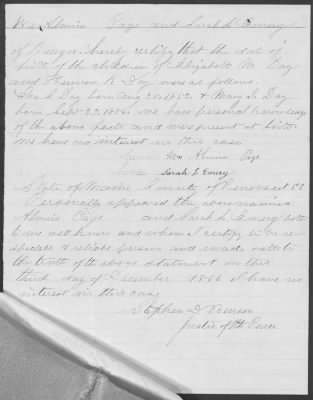 We Almira Page and Sarah L. Emery
of Bangor hereby certify that the date of
birth of the children of Elizabeth M. Day
and Freeman K. Day were as follows.
Ora L Day born Aug 20. 1852. & Mary I. Day
born Sept 27. 1856. we have personal knowledge
of the above facts and were present at birth.
we have no interest in this case.
Mrs Almira Page
Sarah L Emery
State of Maine County of Penobscot SS
Personally appeared the above named
Almira Page and Sarah L. Emery both
to me well known and whom I certify to be re-
spectable & reliable persons and made oath to
the truth of the above statement on this
third day of December 1866. I have no
interest in this case
Stephen D Benson
Justice of the Peace